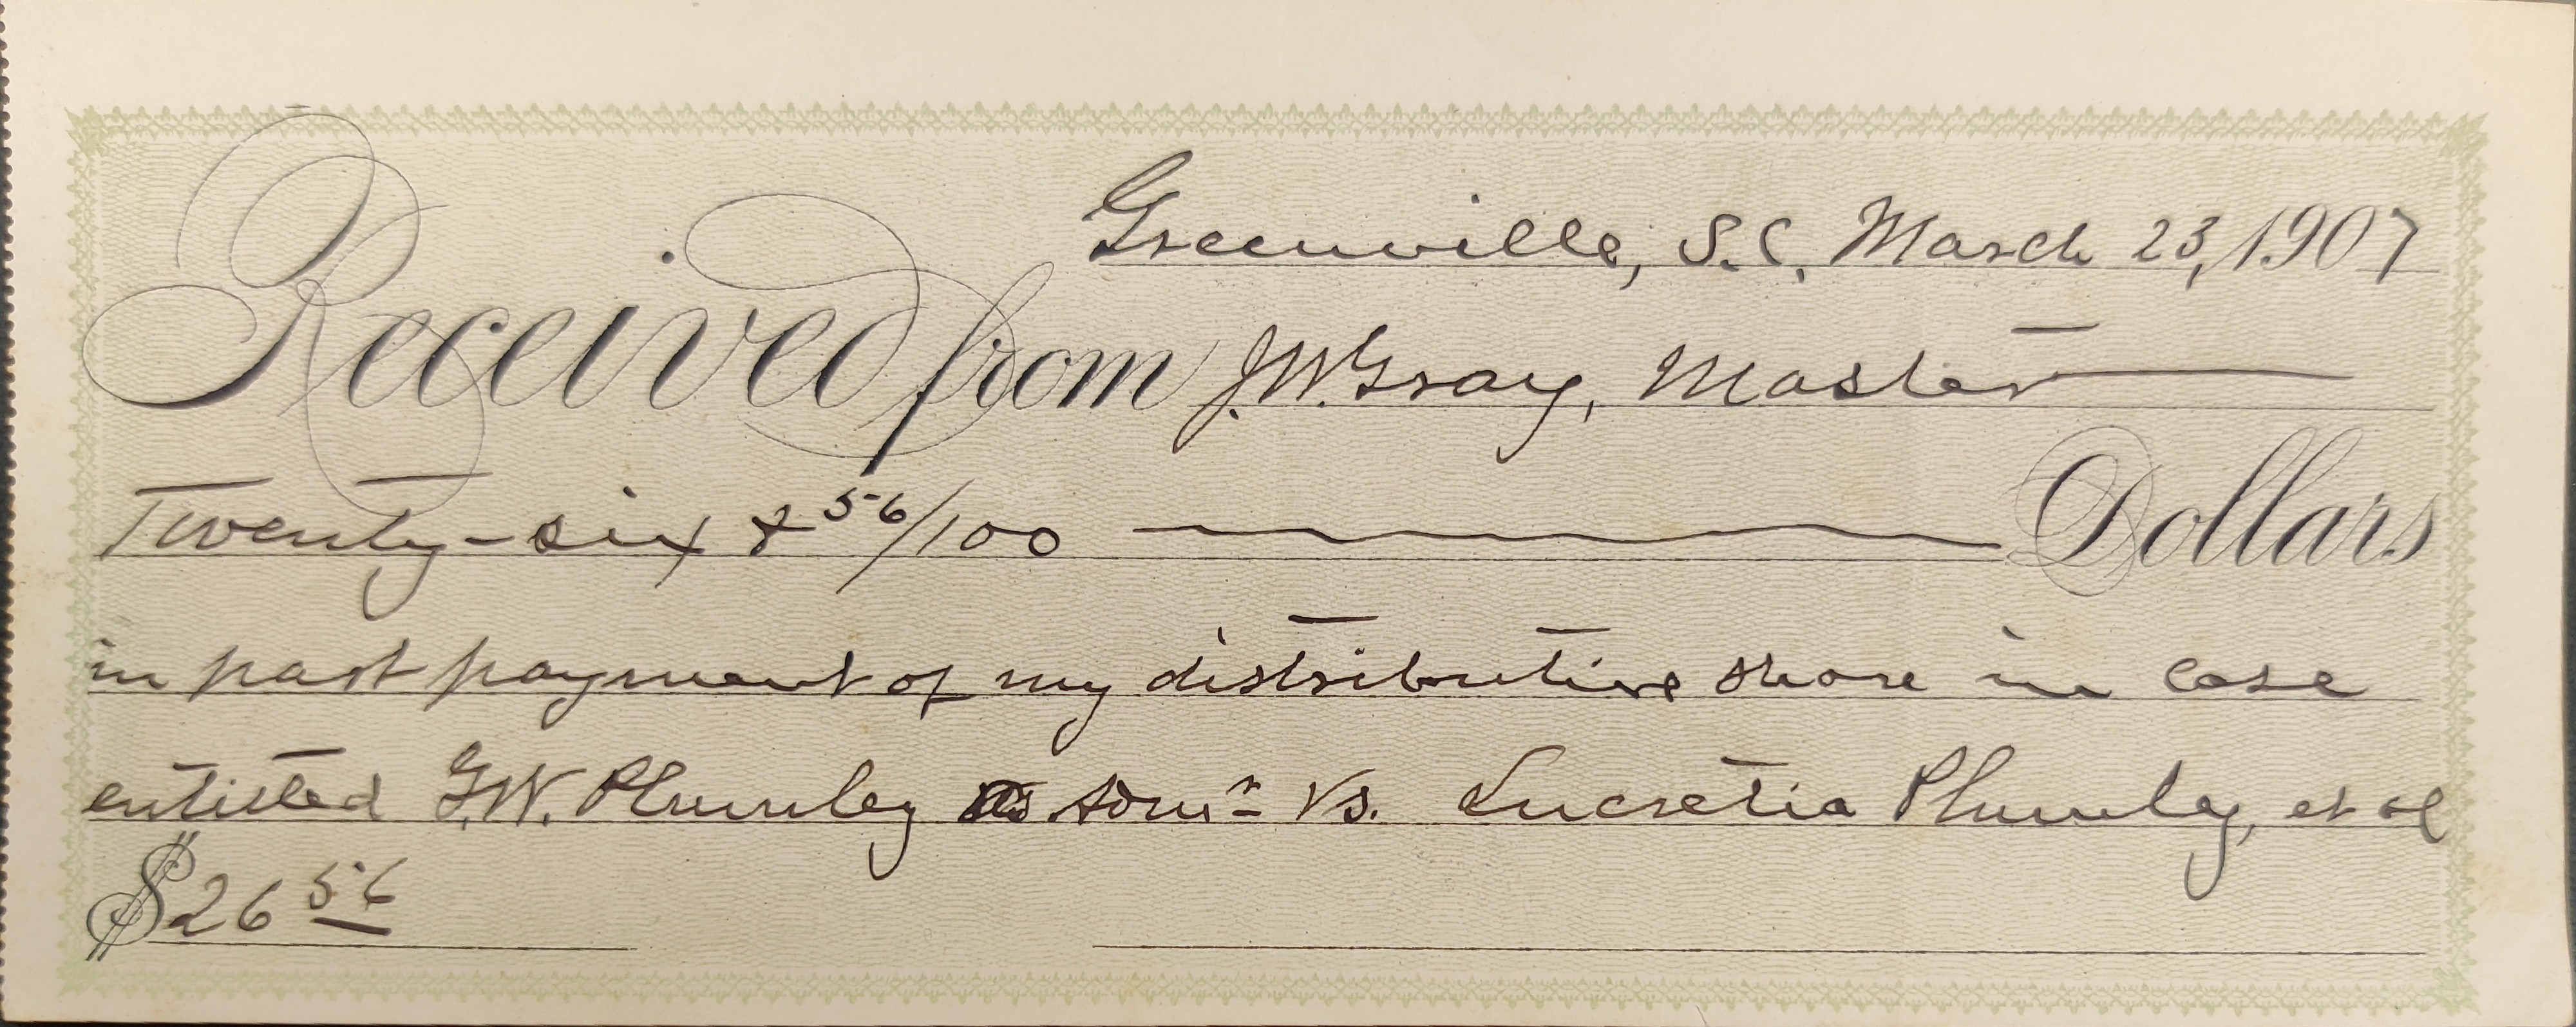 Greenville, S.C. March 23, 1907
Received from J.W. Gray, Master
Twenty-six & 56/100 Dollars
in part payment of my distributive share in case
entitled G.W. Plumley as Adm'r vs. Lucretia Plumley, et al
$26 56